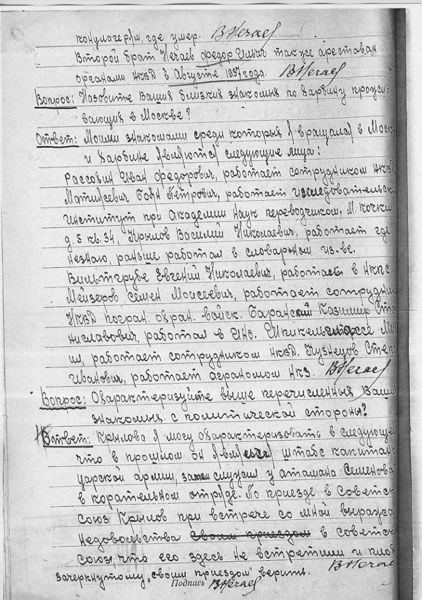 концлагерь, где умер. ВНечаев
Второй брат Нечаев Федор Ильич также арестован
органами НКВД в Августе 1937 года. ВНечаев
Вопрос: Назовите Ваших близких знакомых по Харбину прожи-
вающих в Москве?
Ответ: Моими знакомами среди которых я вращался в Москве
и Харбине являются следующие лица:
Иван Федорович, работает сотрудником НКВД
Петрович, работает
институт при Академии Наук переводчиком,
д. 5 кв. 34, Крылов Василий Николаевич, работает где
незнаю, раньше работал в словарном из-ве.
Евгений Николаевич, работает в НКПС
Мейзеров Семен Моисеевич, работает сотрудник
НКВД погран. охран. войск. Казимир
ниславович, работал в
работает сотрудником НКВД. Кузнецов
Иванович, работает агрономом НКЗ. ВНечаев
Вопрос: Охарактеризуйте выше перечисленных Ваших
знакомых с политической стороны?
Ответ: Крылова я могу охарактеризовать в следующем
что в прошлом он штабс капитан
царской армии, служил у атамана Семенова
в карательном отряде. По приезде в Советск
Союз Крылов при встрече со мной выражал
недовольства своим приездом в советск
союз, что его здесь не встретили и
зачеркнутому "своим приездом" верить.
Подпись ВНечаев ВНечаев